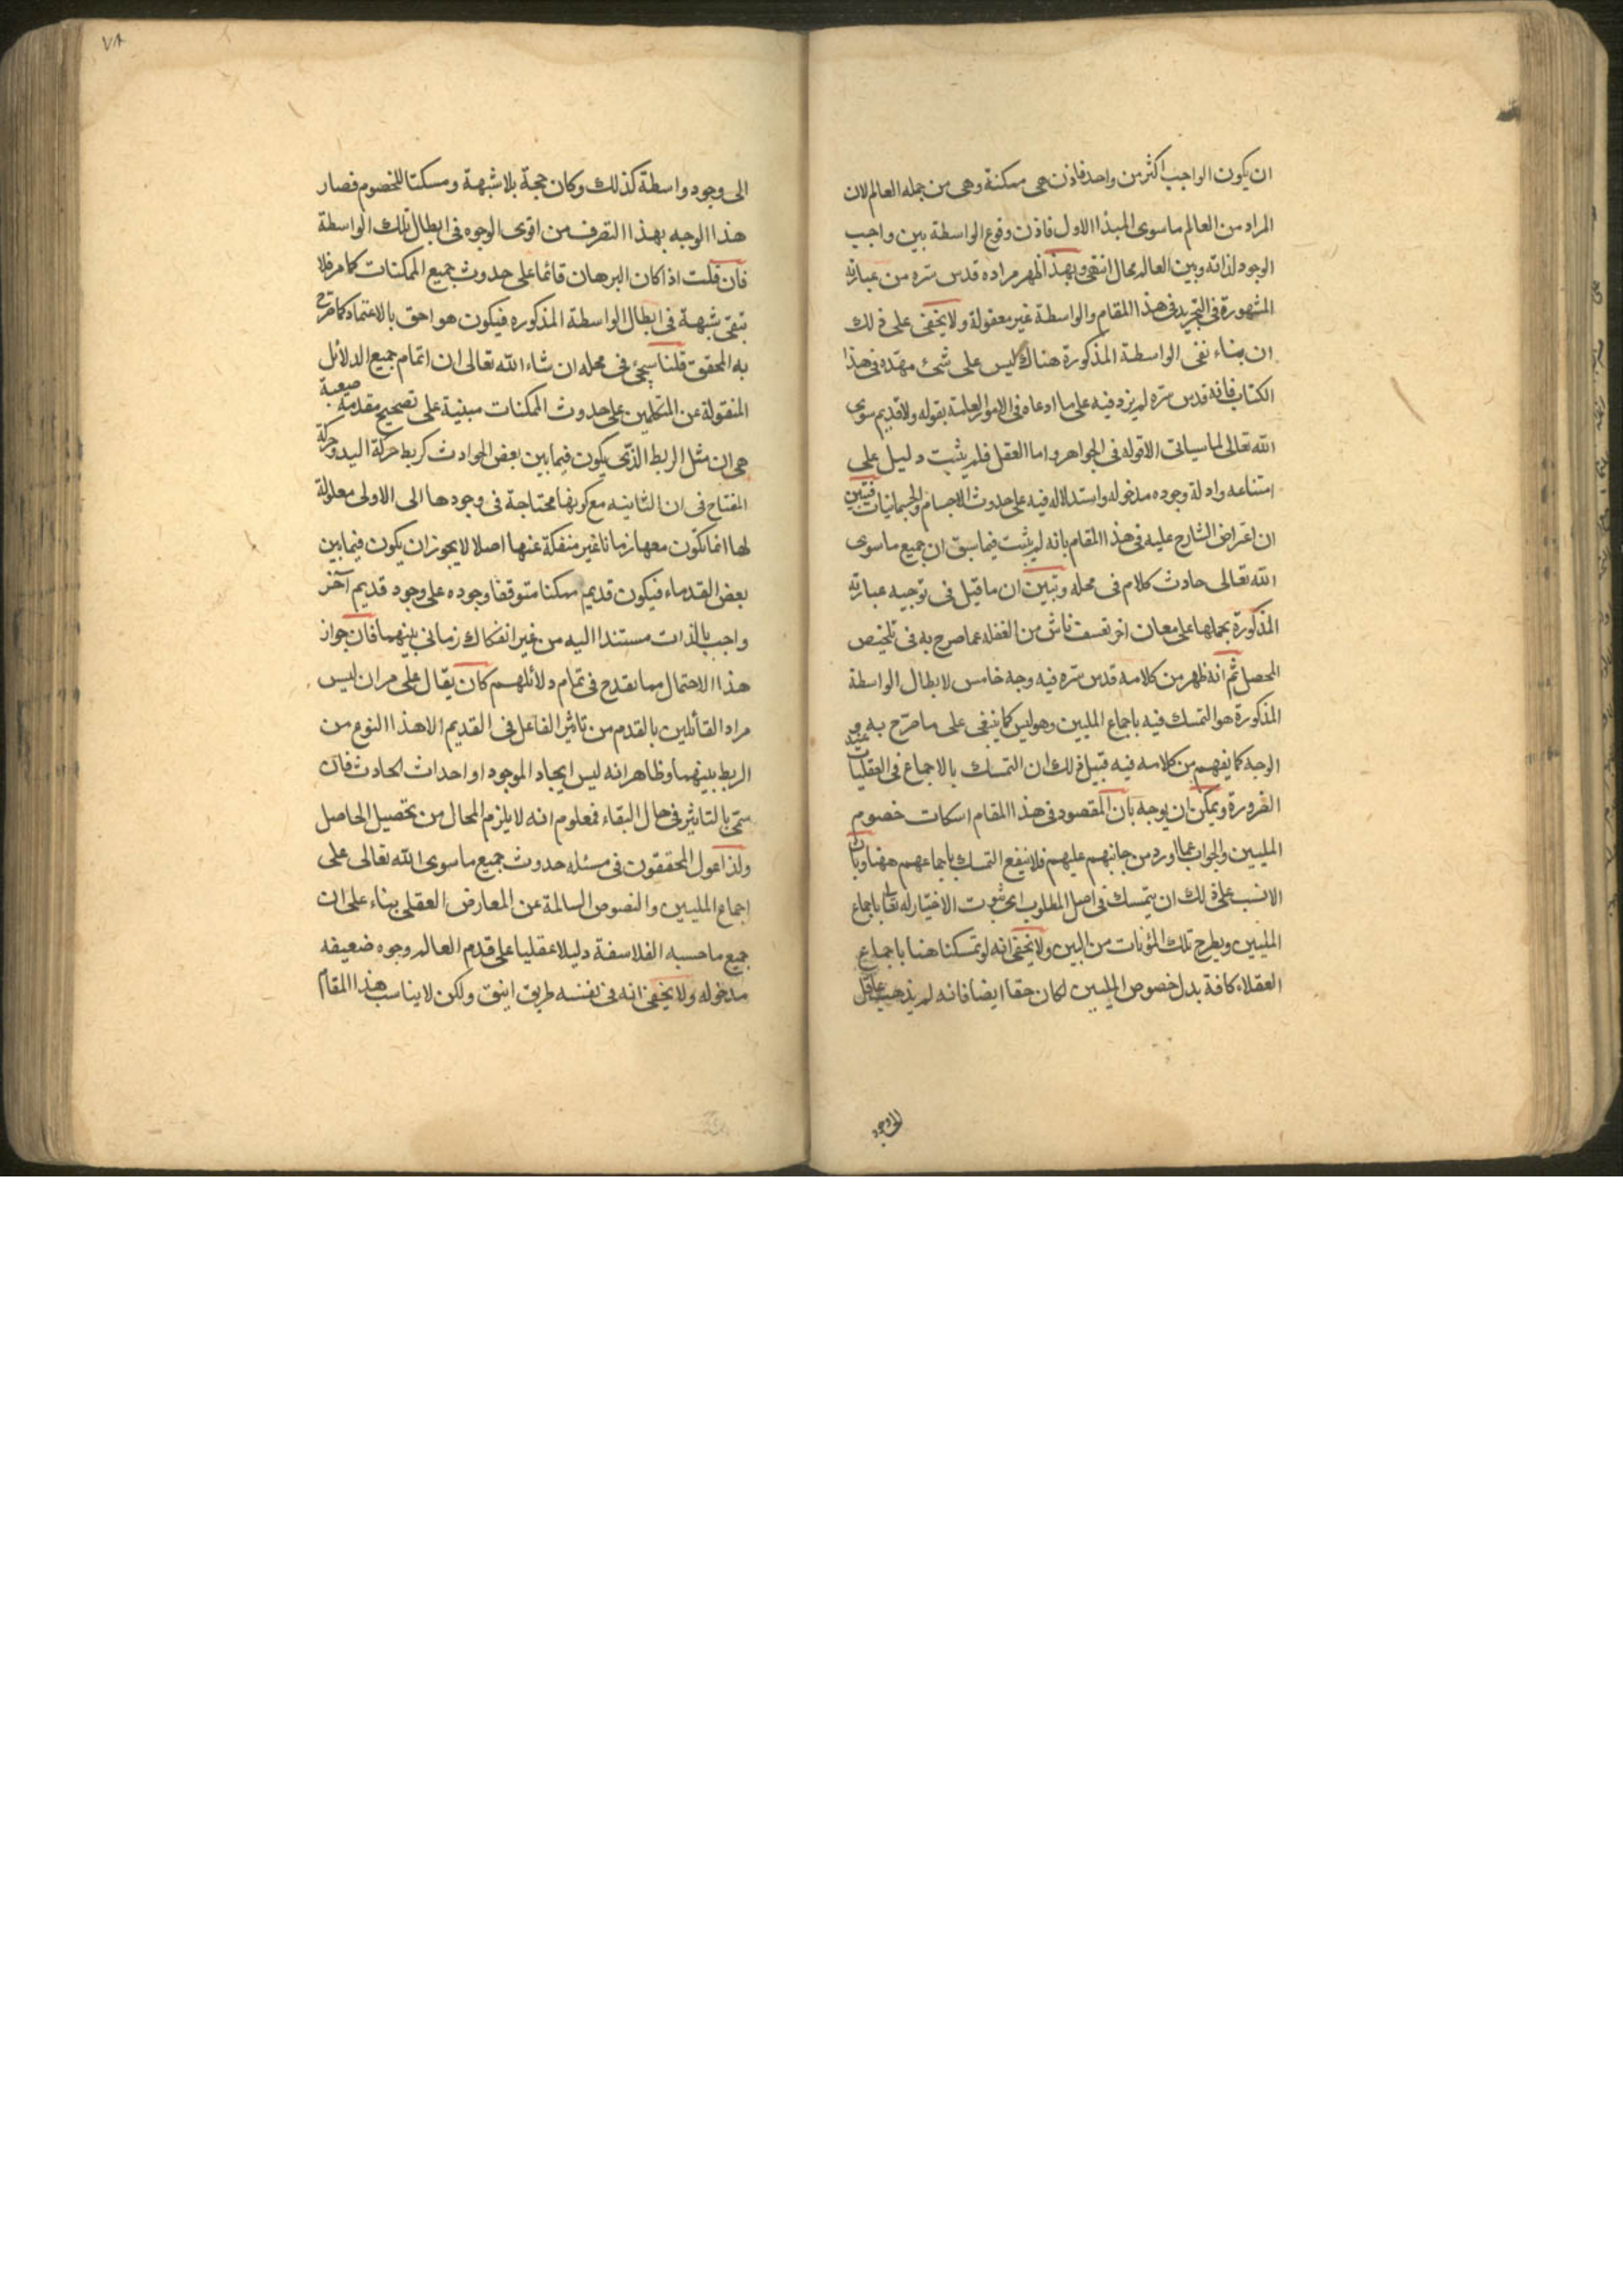 ان يكون الواجب اكثر من واحد فاذن هى ممكنة وهى من جمله العالم لان
المراد من العالم ما سوى المبدا الاول فاذن وقوع الواسطة بين واجب
الوجود لذاته وبين العالم محال انتهى وبهذا ظهر مراده قدس سره من عبارته
المشهورة فى التجريد فى هذا المقام والواسطة غير معقولة ولا يخفى على ذلك
ان بناء نفى الواسطة المذكورة هناك ليس على شئ مهّده فى هذا
الكتاب فانه قدس سره لم يزد فيه على ما ادعاه فى الامور العامة بقوله ولا قديم سوى
الله تعالى لما سياتى الا قوله فى الجواهر واما العقل فلم يثبت دليل على
امتناعه وادلة وجوده مدخوله واستدلاله فيه على حدوث الاجسام والجسمانيات فتبين
ان اعتراض الشارح عليه فى هذا المقام بانه لم يثبت فيما سبق ان جميع ما سوى
الله تعالى حادث كلام فى محله وتبين ان ما قيل فى توجيه عبارته
المذكورة بحملها على معان اخر تعسف ناش من الغفله عما صرح به فى تلخيص
المحصل ثم انه ظهر من كلامه قدس سره فيه وجه خامس لابطال الواسطة
المذكورة هو التمسك فيه باجماع المليين وهو ليس كما ينبغى على ما صرّح به
الوجه كما يفهم من كلامه فيه قبيل ذلك ان التمسك بالاجماع فى العقليات عند
الضرورة ويمكن ان يوجه بان المقصود فى هذا المقام اسكات خصوم
المليين والجواب عما اورد من جانبهم عليهم فلا ينفع التمسك باجماعهم ههنا وبان
الانسب على ذلك ان يتمسك فى اصل المطلوب اى ثبوت الاختيار له تعالى باجماع
المليين ويطرح تلك المؤنات من البين ولا يخفى انه لو تمسكنا هنا باجماع
العقلاء كافة بدل خصوص المليين لكان حقا ايضا فانه لم يذهب عاقل
الى وجود
٧٨
الى وجود واسطة كذلك وكان حجة بلا شبهة ومسكتا للخصوم فصار
هذا الوجه بهذا التصرف من اقوى الوجوه فى ابطال تلك الواسطة
فان قلت اذا كان البرهان قائما على حدوث جميع الممكنات كما مر فلا
تبقى شبهة فى ابطال الواسطة المذكوره فيكون هو احق بالاعتماد كما صرح
به المحقق قلنا سيجئ فى محله ان شاء الله تعالى ان اتمام جميع الدلائل
المنقولة عن المتكلمين على حدوث الممكنات مبنية على تصحيح مقدمة صعبة
هى ان مثل الربط الذى يكون فيما بين بعض الحوادث كربط حركة اليد وحركة
المفتاح فى ان الثانيه مع كونها محتاجة فى وجودها الى الاولى معلولة
لها انما تكون معها زمانا غير منفكة عنها اصلا لا يجوز ان يكون فيما بين
بعض القدماء فيكون قديم ممكنا متوقفا وجوده على وجود قديم آخر
واجب بالذات مستندا اليه من غير انفكاك زمانى بينهما فان جواز
هذا الاحتمال مما يقدح فى تمام دلائلهم كان يقال على مر ان ليس
مراد القائلين بالقدم من تاثير الفاعل فى القديم الا هذا النوع من
الربط بينهما وظاهر انه ليس ايجاد الموجود او احداث الحادث فان
سمّى بالتاثير فى حال البقاء فمعلوم انه لا يلزم المحال من تحصيل الحاصل
ولذا عول المحققون فى مسئله حدوث جميع ما سوى الله تعالى على
اجماع المليين والنصوص السالمة عن المعارض العقلى بناء على ان
جميع ما حسبه الفلاسفة دليلا عقليا على قدم العالم وجوه ضعيفه
مدخوله ولا يخفى انه فى نفسه طريق انيق ولكن لا يناسب هذا المقام